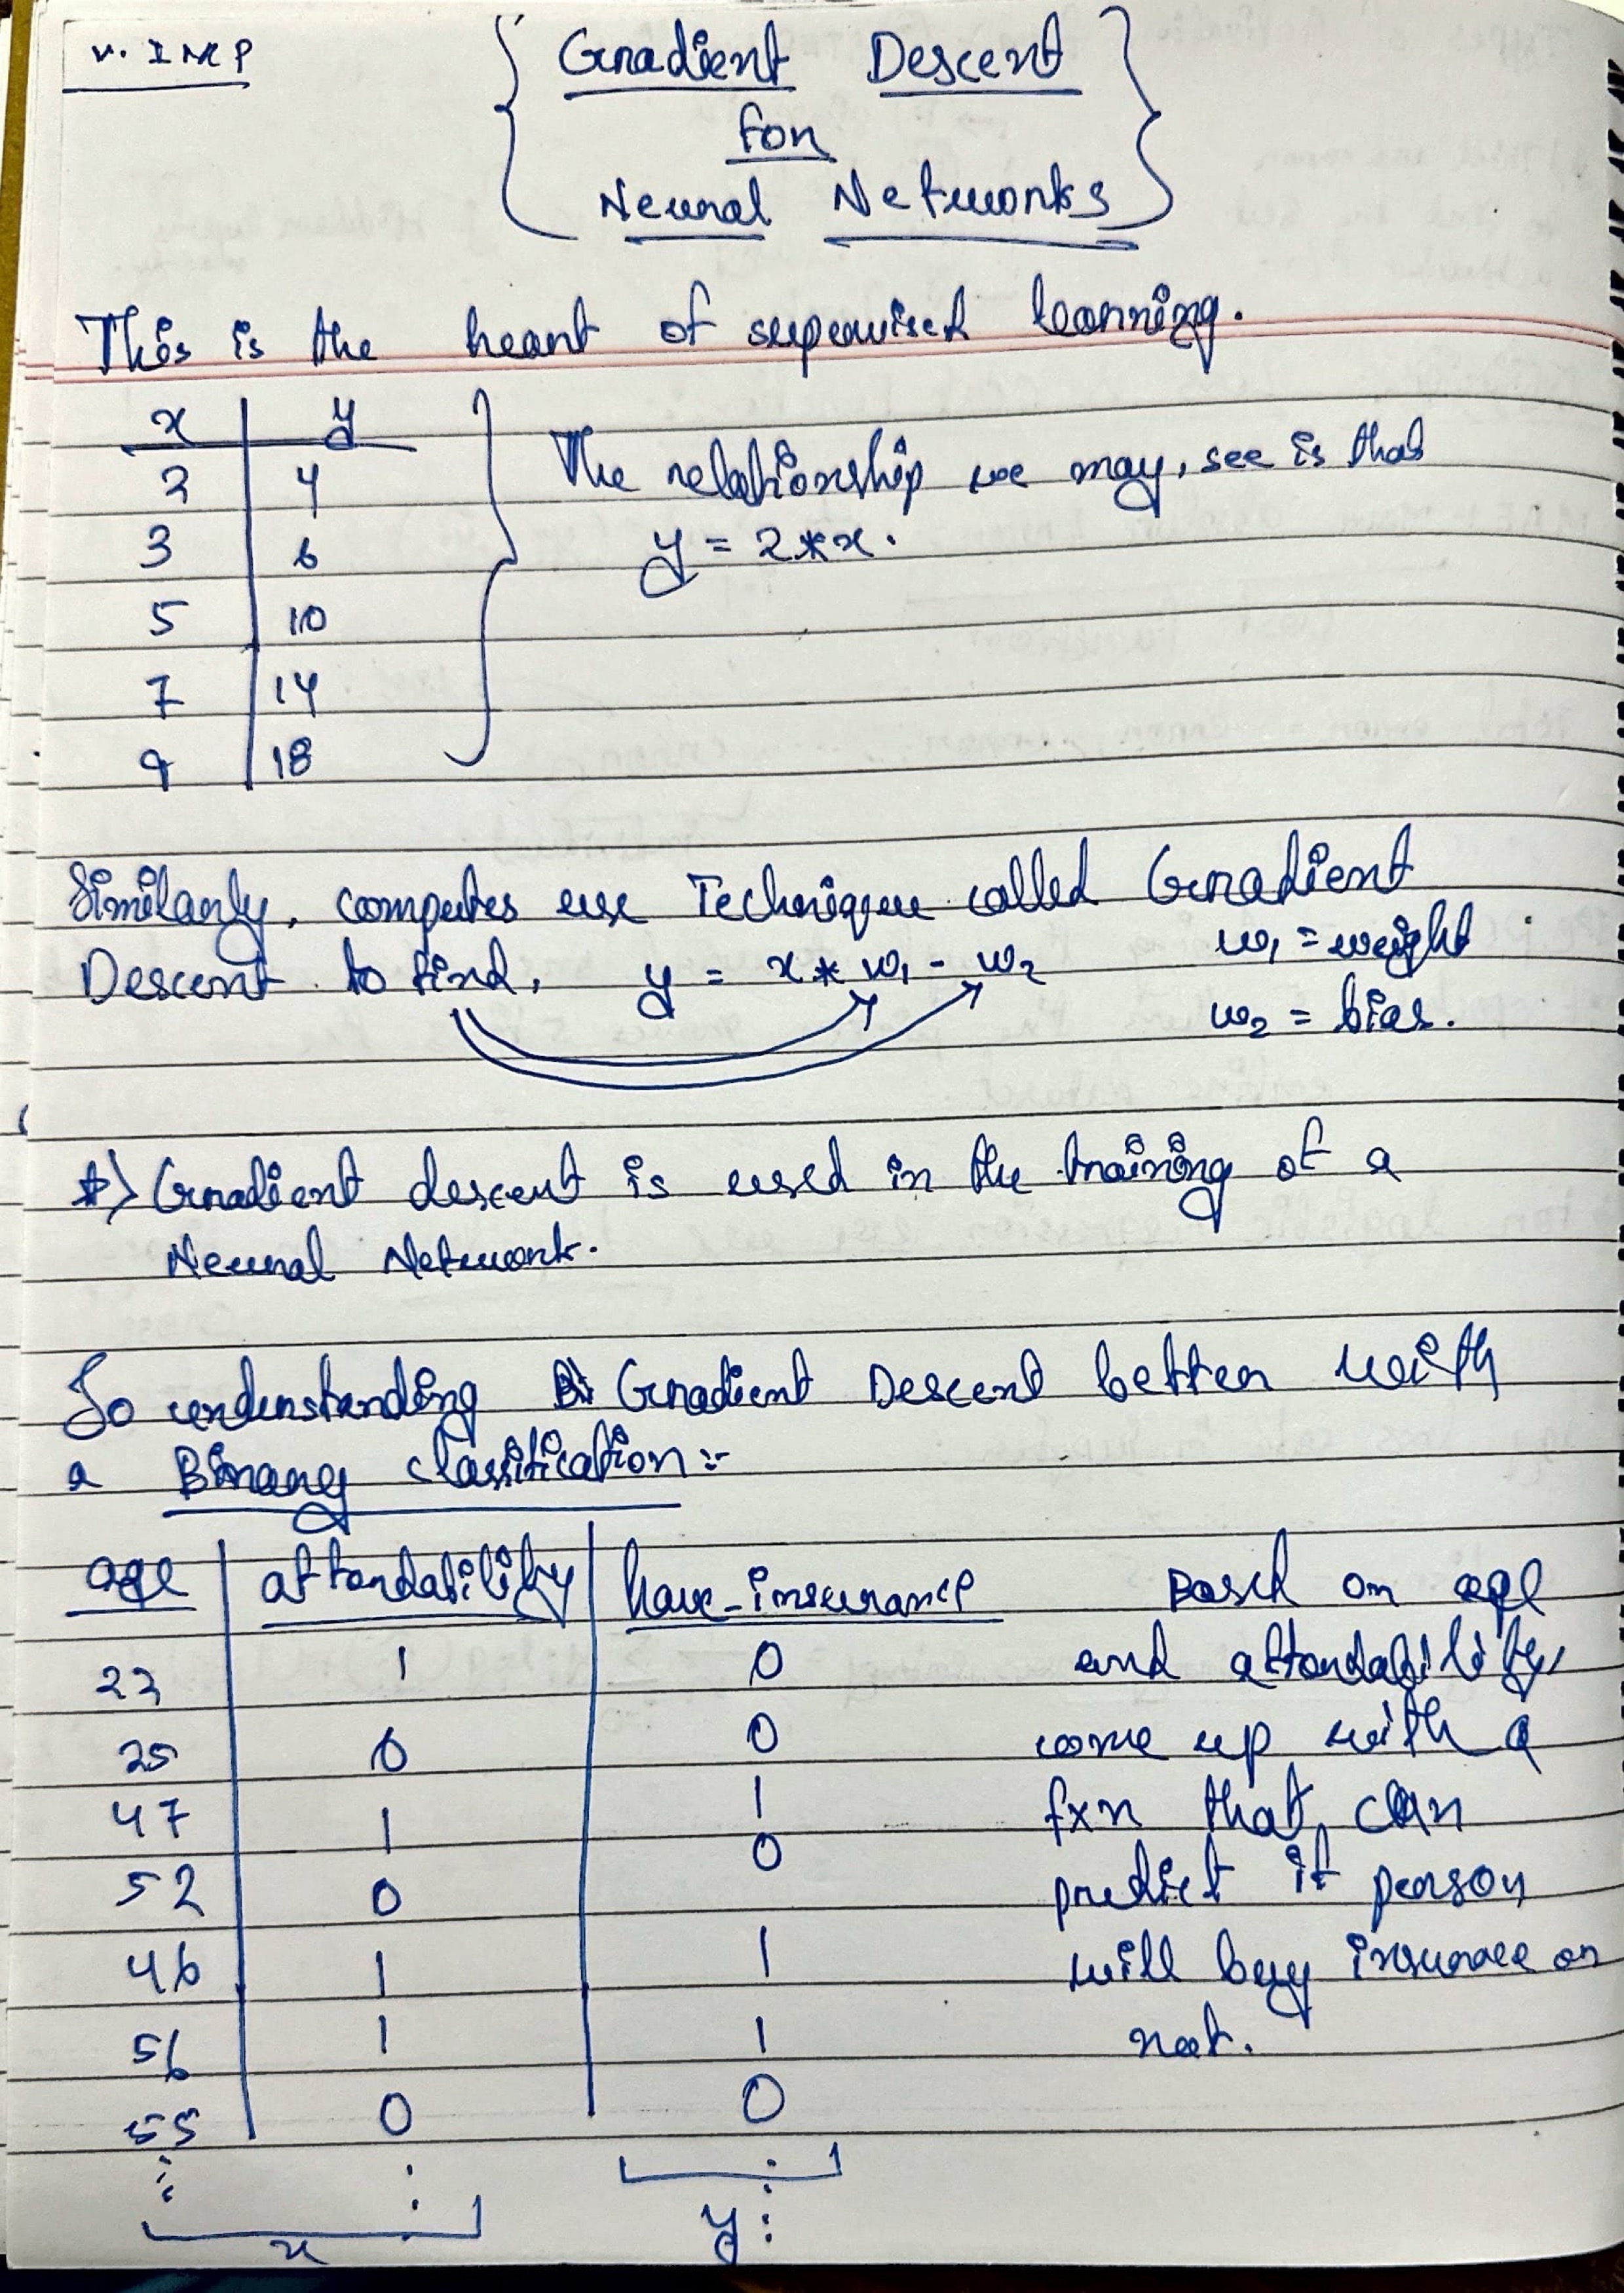 v. IMP
Gradient Descent
for
Neural Networks
This is the heart of supervised learning.
x | y
2 | 4
3 | 6
5 | 10
7 | 14
9 | 18
The relationship we may, see is that
y = 2*x.
Similarly, computes use Technique called Gradient
Descent to find, y = x * w₁ - w₂
w₁ = weight
w₂ = bias.
*> Gradient descent is used in the training of a
Neural Network.
So understanding Gradient Descent better with
a Binary classification:-
age | affordability | have_insurance
22 | 1 | 0
25 | 0 | 0
47 | 1 | 1
52 | 0 | 0
46 | 1 | 1
56 | 1 | 1
55 | 0 | 0
x
y
Based on age
and affordability,
come up with a
fxn that can
predict if person
will buy insurance or
not.